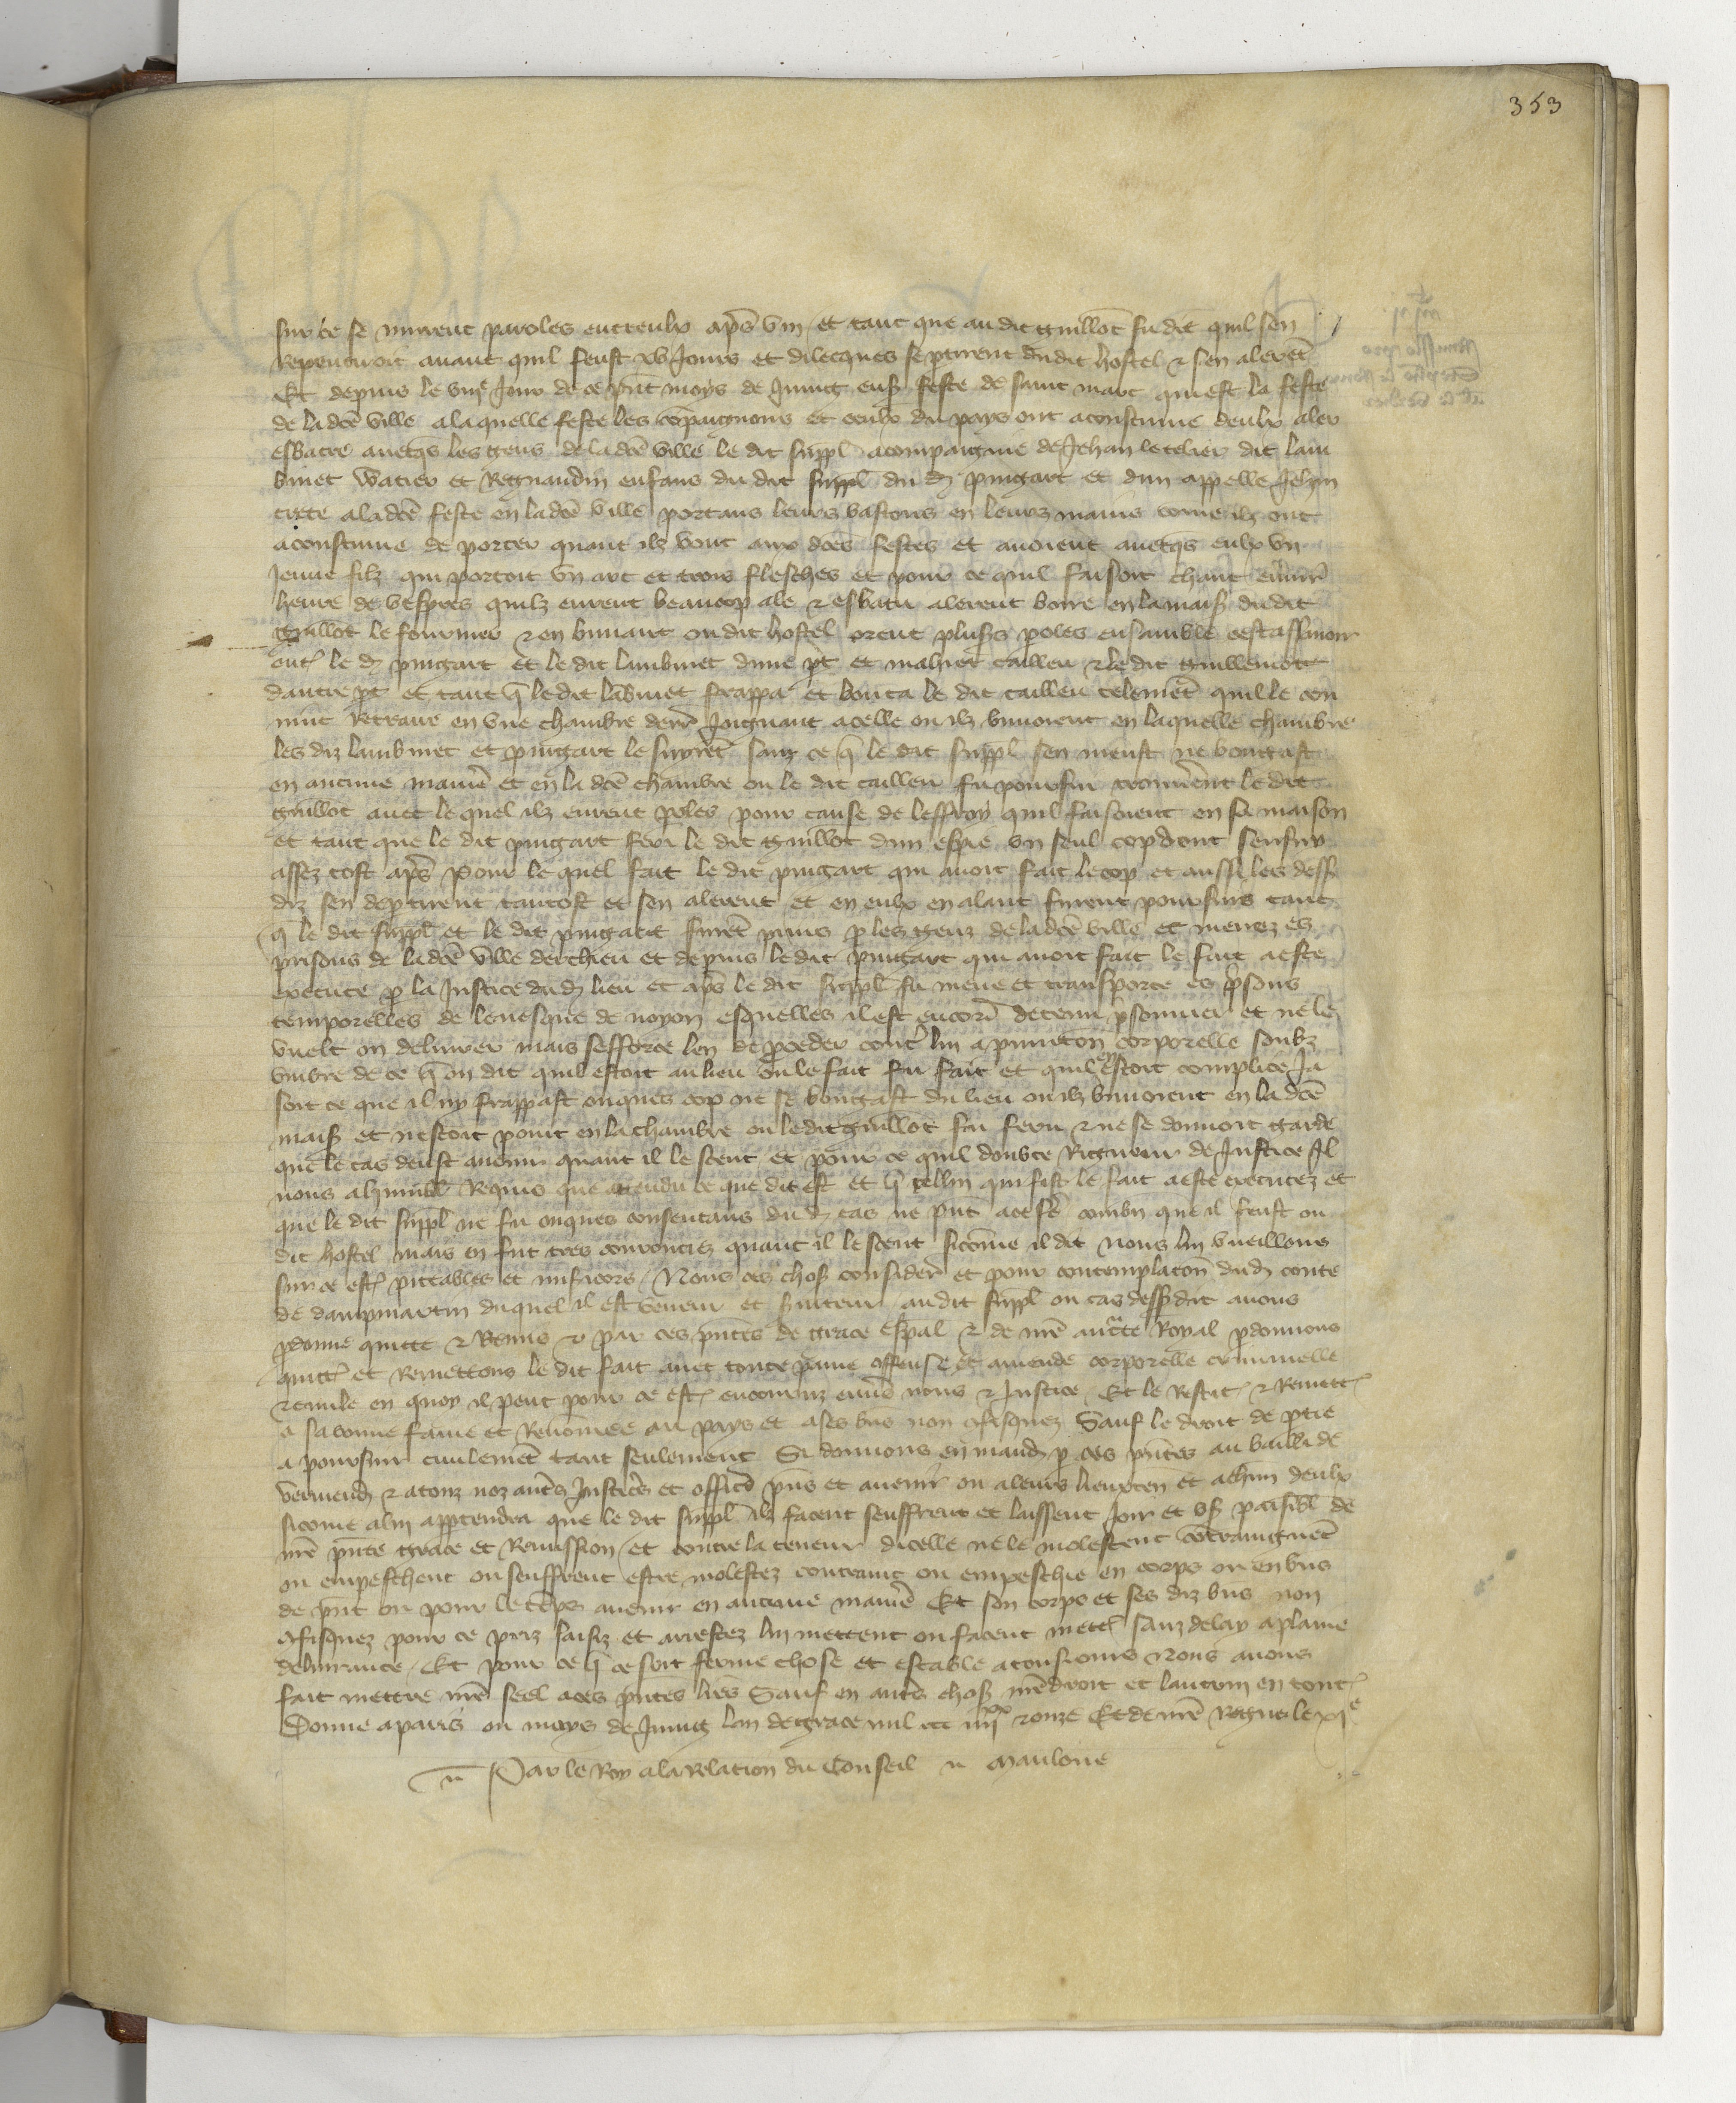 353
sur ce se murent paroles entreulx aps vin et tant que au dit guillot fu dit quil sen
Repentiroit avant quil feust xv Jours et dilecques se ptirent du dit hostel & sen aleret
Et depuis le viiie Jour de ce pnt moys de Juing eust feste de saint marc qui est la feste
de la dce ville a laquelle feste les compaignons et ceulx du pays ont acoustume deulx aler
esbatre avecqs les gens de la dce ville le dit suppl acompaignie de Jehan letelier dit lam
binet watier et Regnaudin enfans du dit suppl du d pingart et dun appelle Jehan
a la dce feste en la dce ville portans leurs bastons en leurs mains come ilz ont
acoustume de porter quant ilz vont aux dces festes et avoient avecqs eulx vn
Jeune filz qui portoit vn arc et trois flesches et pour ce quil faisoit chaut environ
heure de vespres quilz eurent beaucop ale & esbatu alerent boire en la mais du dit
guillot le fournier & en buvant ou dit hostel orent plus poles ensamble cestassavoir
entr le d pingart et le dit lambinet dune pt et mahiet cailleu & le dit guillemot
dautre pt et tant q le dit labinet frappa et bouta le dit cailleu telemet quil le con
vint Retraire en vne chambre derr Joignant a celle ou ilz buvoient en laquelle chambre
les diz lambinet et pingart le suyret sanz ce q le dit suppl sen meust ne bougast
en aucune manie et en la dce chambre ou le dit cailleu fu poursui trouverent le dit
guillot avec le quel ilz eurent poles pour cause de leffroy quil faisoient en sa maison
et tant que le dit pingart feri le dit guillot dun espie vn seul cop dont sensuy
assez tost aps Pour le quel fait le dit pingart qui avoit fait le cop et aussi les dess
diz sen deptirent tantost et sen alerent et en eulx en alant furent poursuis tant
q le dit suppl et le dit pingart furet prins p les genz de la dce ville et menez es
prisons de la dce ville derchieu et depuis le dit pingart qui avoit fait le fait a este
execute p la Justice du d lieu et aps le dit suppl fu mene et transporte es psons
temporelles de levesque de noyon esquelles il est encore detenu psonnier et ne le
vuelt on delivrer mais sefforce len de pceder contr lui a punicon corporelle soubz
vmbre de ce q on dit quil estoit au lieu ou le fait fu fait et quil en estoit complice Ja
soit ce que il ny frappast onques cop ne se bougast du lieu ou ilz buvoient en la dce
mais et nestoit point en la chambre ou le dit guillot fu feru & ne se donnoit garde
que le cas deust avenir quant il le sceut et pour ce quil doubte Rigueur de Justice Il
nous a humbl Requis que attendu ce que dit est et q cellui qui fist le fait a este executez et
que le dit suppl ne fu onques consentans du d cas ne pnt a ce fe combn que il feust ou
dit hostel mais en fut tres courouciez quant il le sceut sicomme il dit nous lui vueillons
sur ce estr piteables et misicors Nous ces chos consider et pour contemplacon du d conte
de dampmartin duquel il est veneur et suiteur au dit suppl ou cas dessdit avons
pdonne quicte & Remis & par ces pntes de grace espal & de nre aucte Royal pdonnons
quictr et Remettons le dit fait avec toute paine offense et amende corporelle criminelle
& civile en quoy il peut pour ce estr encouruz envs nous & Justice Et le Restit & Remett
a sa bonne fame et Renommee au pays et a ses bns non cfisquez Sauf le droit de ptie
a poursuir civilemet tant seulement Si donnons en mand p ces pntes au bailli de
vermend & a touz noz autrs Justicrs et officrs pns et avenir ou a leurs lieuxten et a chun deulx
sicome a lui apptendra que le dit suppl ilz facent seuffrent et laissent Joir et us paisibl de
nre pnte grace et Remission et contre la teneur dicelle ne le molestent contraingnent
ou empeschent ou seuffrent estre molestez contraint ou empeschie en corps ou en bns
de pnt ou pour le teps avenir en aucune manie Et son corps et ses diz bns non
cfisquez pour ce priz saisiz et arrestez lui mettent ou facent mettr sanz delay a plaine
delivrance Et pour ce q ce soit ferme chose et estable a tousiours Nous avons
fait mettre nre seel a ces pntes lres Sauf en autrs chos nre droit et lautruy en toutr
Donne a paris ou moys de Juing lan de grace mil ccc iiiixx & onze Et de nre Regne le xie
Par le Roy a la Relation du Conseil Maulone